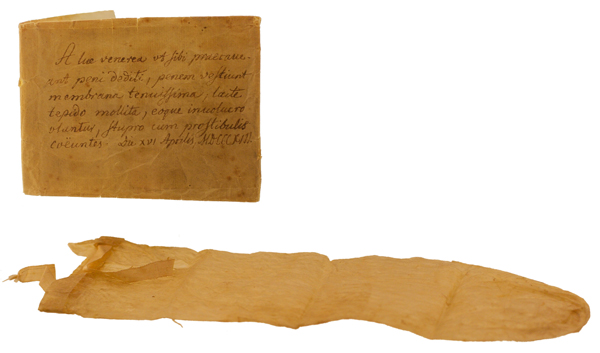 A lue venerea vt sibi praecave-
ant peni dediti, penem vestiunt
membrana tenuissima, lacte
tepido mollita, eoque involucro
vtuntur, stupro cum prostibulis
coëuntes. XVI Aprilis